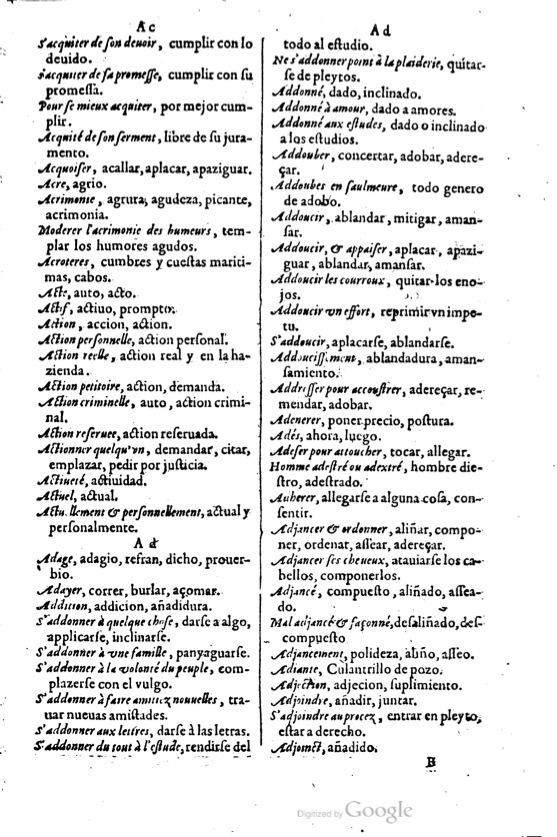 Ac
S'acquiter de ſon deuoir, cumplir con lo
deuido.
S'acquiter de ſa promeſſe, cumplir con ſu
promeſſa.
Pour ſe mieux acquiter, por mejor cum-
plir.
Acquité de ſon ſerment, libre de ſu jura-
mento.
Acquoiſer, acallar, aplacar, apaziguar.
Acre, agrio.
Acrimonie, agrura, agudeza, picante,
acrimonia.
Moderer l'acrimonie des humeurs, tem-
plar los humores agudos.
Acroteres, cumbres y cueſtas mariti-
mas, cabos.
Acte, auto, acto.
Actif, actiuo, prompto.
Action, accion, action.
Action perſonnelle, action perſonal.
Action reelle, action real y en la ha-
zienda.
Action petitoire, action, demanda.
Action criminelle, auto, action crimi-
nal.
Action reſeruee, action reſeruada.
Actionner quelqu'vn, demandar, citar,
emplazar, pedir por juſticia.
Actiueté, actiuidad.
Actuel, actual.
Actuellement & perſonnellement, actual y
perſonalmente.
Ad
Adage, adagio, refran, dicho, prouer-
bio.
Adayer, correr, burlar, açomar.
Addition, addicion, añadidura.
S'addonner à quelque choſe, darſe a algo,
applicarſe, inclinarſe.
S'addonner à vne famille, panyaguarſe.
S'addonner à la volonté du peuple, com-
plazerſe con el vulgo.
S'addonner à faire amitiez nouuelles, tra-
uar nueuas amiſtades.
S'addonner aux lettres, darſe à las letras.
S'addonner du tout à l'eſtude, rendirſe del
Ad
todo al eſtudio.
Ne s'addonner point à la plaiderie, quitar-
ſe de pleytos.
Addonné, dado, inclinado.
Addonné à amour, dado a amores.
Addonné aux eſtudes, dado o inclinado
a los eſtudios.
Addouber, concertar, adobar, adere-
çar.
Addoubes en ſaulmeure, todo genero
de adobo.
Addoucir, ablandar, mitigar, aman-
ſar.
Addoucir, & appaiſer, aplacar, apazi-
guar, ablandar, amanſar.
Addoucir les courroux, quitar los eno-
jos.
Addoucir vn effort, reprimir vn impe-
tu.
S'addoucir, aplacarſe, ablandarſe.
Addouciſſement, ablandadura, aman-
ſamiento.
Addreſſer pour accouſtrer, adereçar, re-
mendar, adobar.
Adenerer, poner precio, poſtura.
Adés, ahora, luego.
Adeſer pour attoucher, tocar, allegar.
Homme adeſtré ou adextré, hombre die-
ſtro, adeſtrado.
Adherer, allegarſe a alguna coſa, con-
ſentir.
Adjancer & ordonner, aliñar, compo-
ner, ordenar, aſſear, adereçar.
Adjancer ſes cheueux, atauiarſe los ca-
bellos, componerlos.
Adjancé, compueſto, aliñado, aſſea-
do.
Mal adjancé & façonné, deſaliñado, deſ-
compueſto
Adjancement, polideza, aliño, aſſeo.
Adiante, Culantrillo de pozo.
Adjection, adjecion, ſuplimiento.
Adjoindre, añadir, juntar.
S'adjoindre au procez, entrar en pleyto,
eſtar a derecho.
Adjoinct, añadido.
B
Digitized by Google